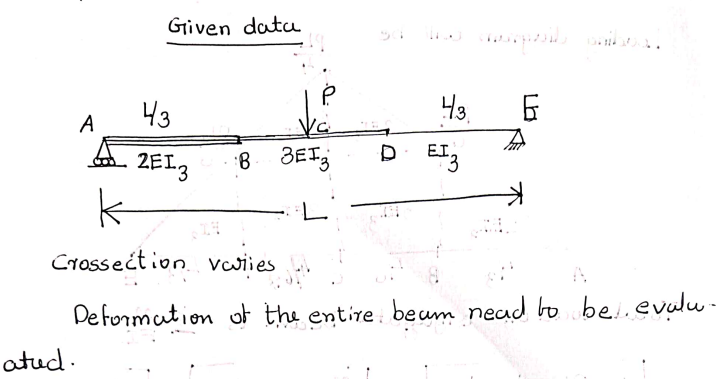 Given data
P
A L/3 C L/3 E
2EI₃ B 3EI₃ D EI₃
L
Crossection varies
Deformation of the entire beam nead to be evalu-
ated.